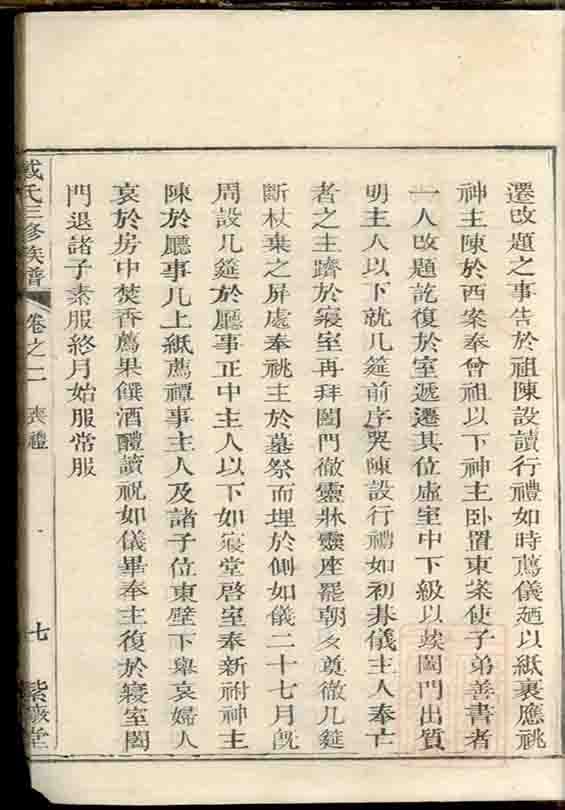 遷改題之事告於祖陳設讀行禮如時薦儀廼以紙裹應祧
神主陳於西案奉曾祖以下神主卧置東案使子弟善書者
一人改題訖復於室遞遷其位虛室中下級以竢闔門出質
明主人以下就几筵前序哭陳設行禮如初朞儀主人奉亡
者之主躋於寢室再拜闔門徹靈牀靈座罷朝夕奠徹几筵
斷杖棄之屏處奉祧主於墓祭而埋於側如儀二十七月旣
周設几筵於廳事正中主人以下如寢堂啓室奉新祔神主
陳於廳事几上紙薦禫事主人及諸子位東壁下舉哀婦人
哀於房中焚香薦果饌酒醴讀祝如儀畢奉主復於寢室闔
門退諸子素服終月始服常服
戴氏三修族譜 卷之二 喪禮 七 紫薇堂